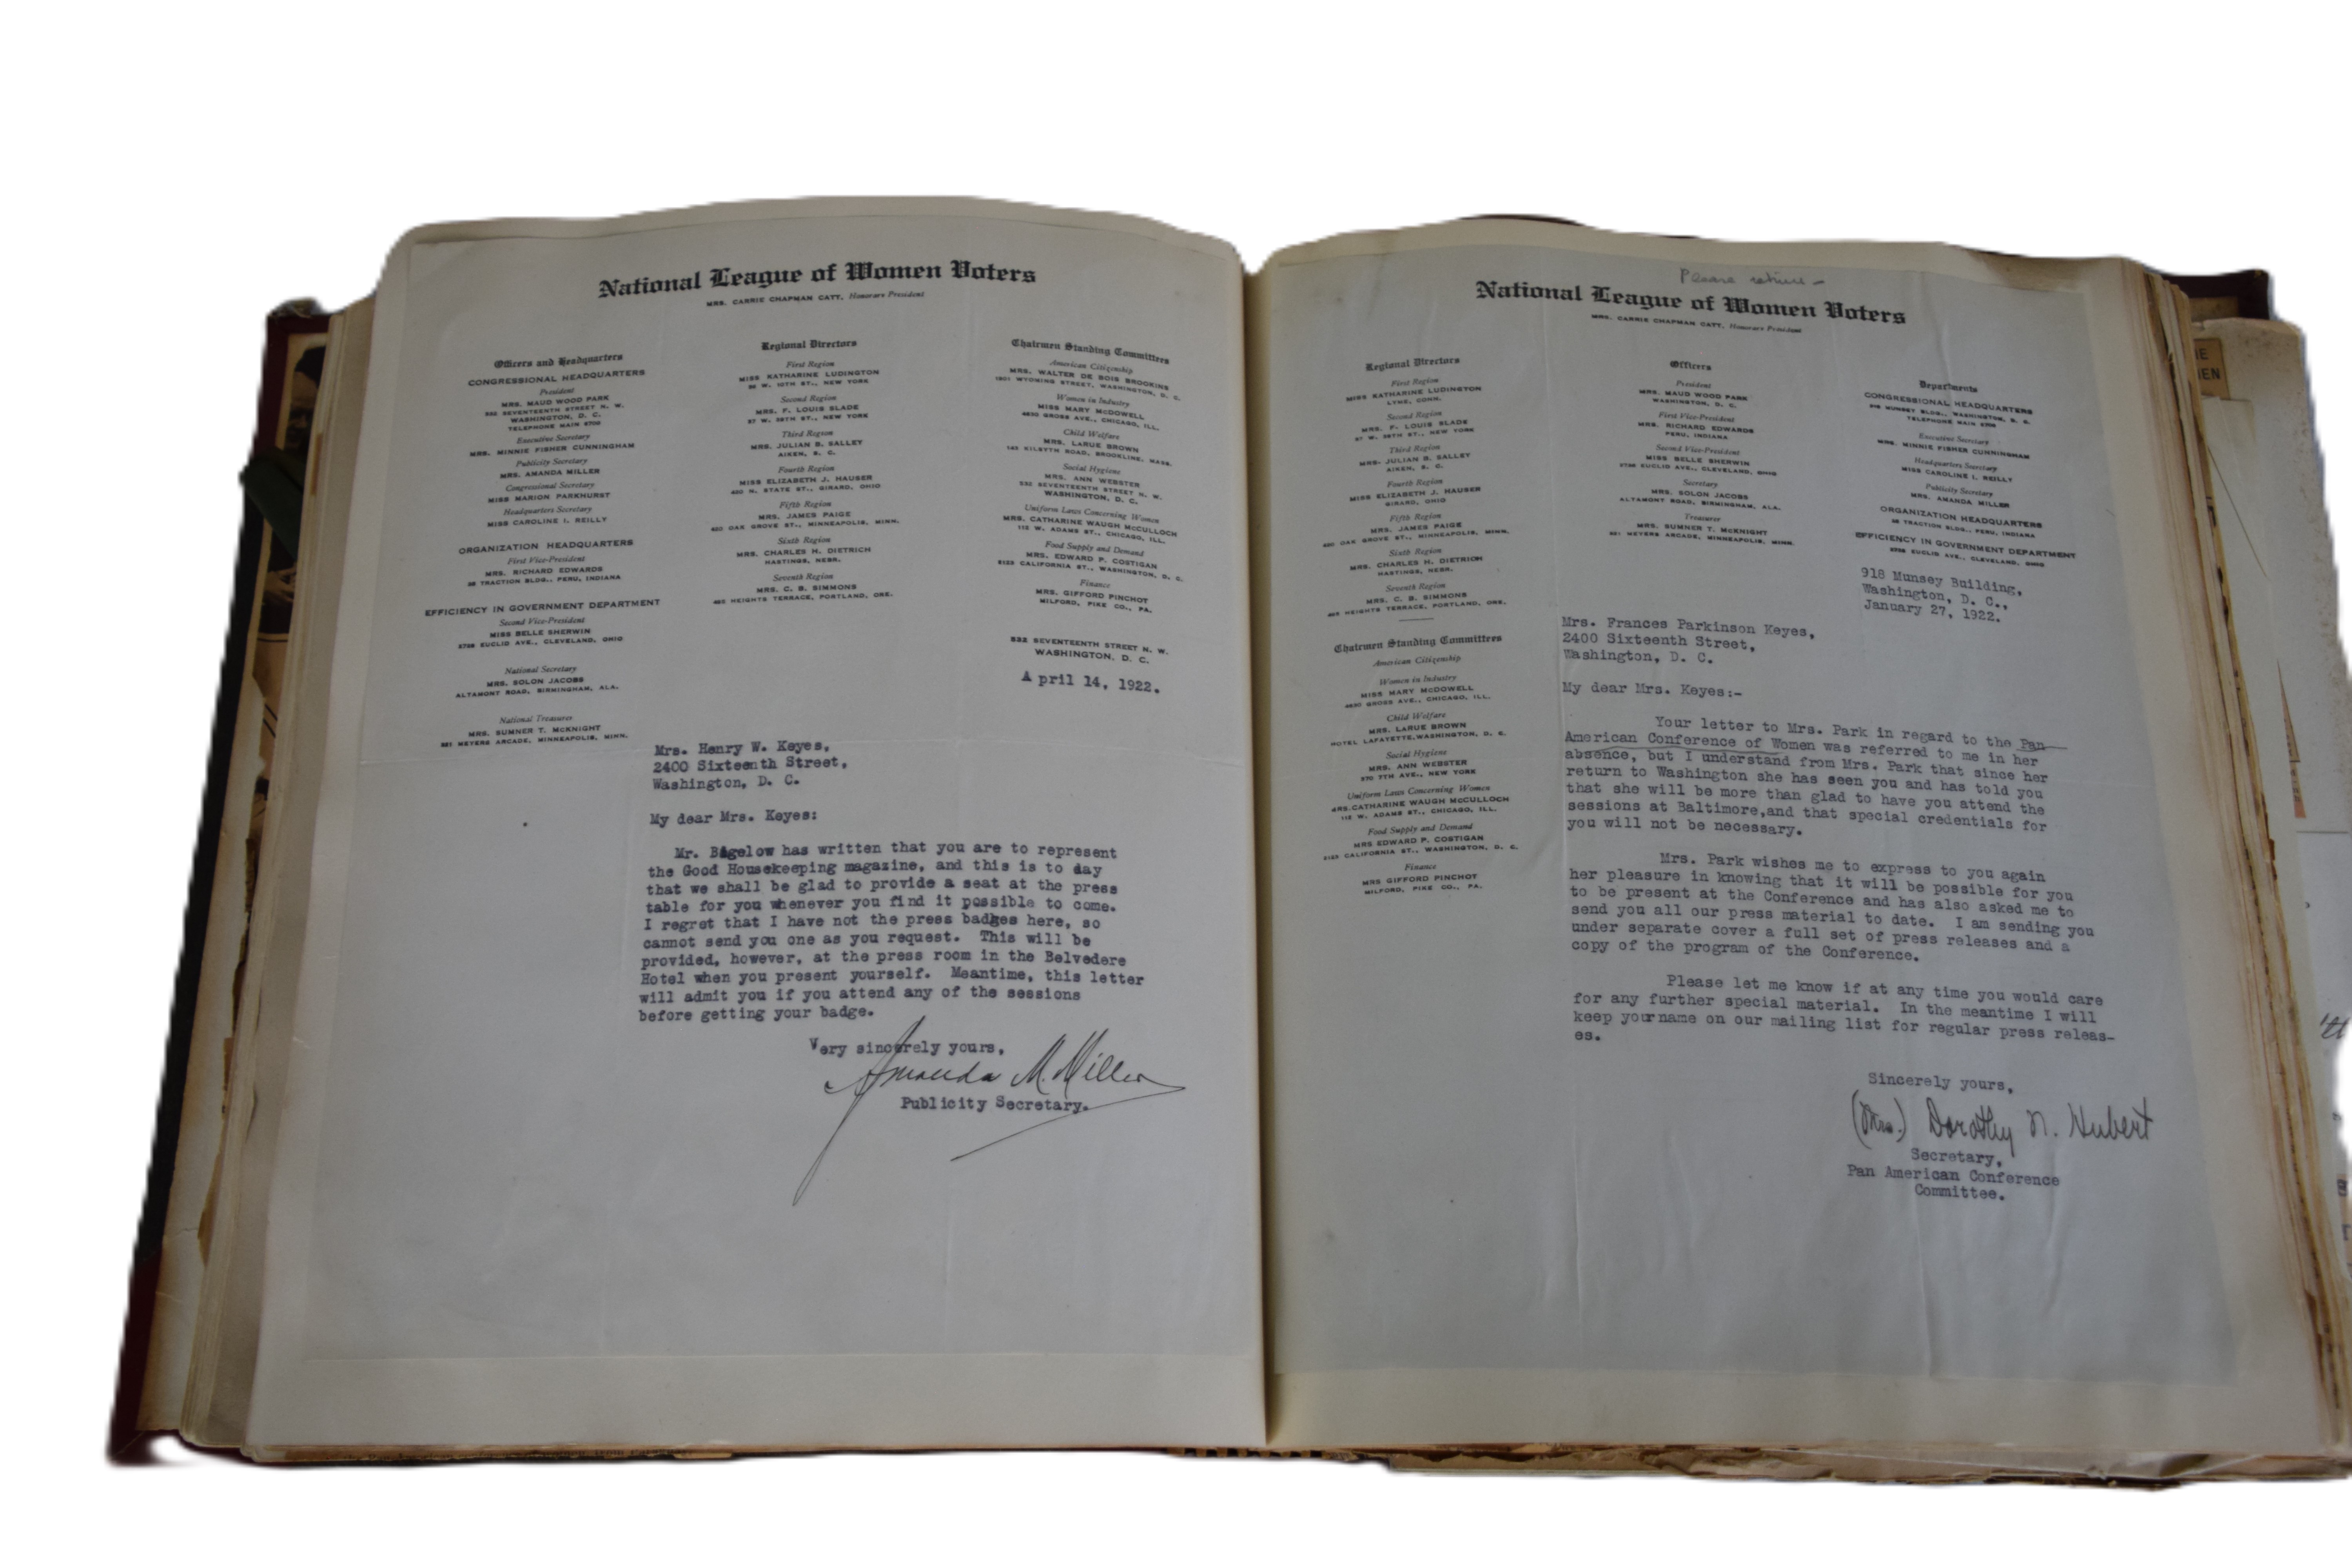 National League of Women Voters
MRS. CARRIE CHAPMAN CATT, Honorary President
Officers and Headquarters
CONGRESSIONAL HEADQUARTERS
President
MRS. MAUD WOOD PARK
532 SEVENTEENTH STREET N. W.
WASHINGTON, D. C.
TELEPHONE MAIN 8700
Executive Secretary
MRS. MINNIE FISHER CUNNINGHAM
Publicity Secretary
MRS. AMANDA MILLER
Congressional Secretary
MISS MARION PARKHURST
Headquarters Secretary
MISS CAROLINE I. REILLY
ORGANIZATION HEADQUARTERS
First Vice-President
MRS. RICHARD EDWARDS
TRACTION BLDG., PERU, INDIANA
EFFICIENCY IN GOVERNMENT DEPARTMENT
Second Vice-President
MISS BELLE SHERWIN
EUCLID AVE., CLEVELAND, OHIO
National Secretary
MRS. SOLON JACOBS
ALTAMONT ROAD, BIRMINGHAM, ALA.
National Treasurer
MRS. SUMNER T. McKNIGHT
MEYERS ARCADE, MINNEAPOLIS, MINN.
Regional Directors
First Region
MISS KATHARINE LUDINGTON
W. 10TH ST., NEW YORK
Second Region
MRS. F. LOUIS SLADE
W. 38TH ST., NEW YORK
Third Region
MRS. JULIAN B. SALLEY
AIKEN, S. C.
Fourth Region
MISS ELIZABETH J. HAUSER
N. STATE ST., GIRARD, OHIO
Fifth Region
MRS. JAMES PAIGE
420 OAK GROVE ST., MINNEAPOLIS, MINN.
Sixth Region
MRS. CHARLES H. DIETRICH
HASTINGS, NEBR.
Seventh Region
MRS. C. B. SIMMONS
HEIGHTS TERRACE, PORTLAND, ORE.
Chairmen Standing Committees
American Citizenship
MRS. WALTER DE BOIS BROOKINS
1801 WYOMING STREET, WASHINGTON, D. C.
Women in Industry
MISS MARY McDOWELL
4630 GROSS AVE., CHICAGO, ILL.
Child Welfare
MRS. LARUE BROWN
KILSYTH ROAD, BROOKLINE, MASS.
Social Hygiene
MRS. ANN WEBSTER
532 SEVENTEENTH STREET N. W.
WASHINGTON, D. C.
Uniform Laws Concerning Women
MRS. CATHARINE WAUGH McCULLOCH
112 W. ADAMS ST., CHICAGO, ILL.
Food Supply and Demand
MRS. EDWARD P. COSTIGAN
2123 CALIFORNIA ST., WASHINGTON, D. C.
Finance
MRS. GIFFORD PINCHOT
MILFORD, PIKE CO., PA.
532 SEVENTEENTH STREET N. W.
WASHINGTON, D. C.
April 14, 1922.
Mrs. Henry W. Keyes,
2400 Sixteenth Street,
Washington, D. C.
My dear Mrs. Keyes:
Mr. Bigelow has written that you are to represent
the Good Housekeeping magazine, and this is to day
that we shall be glad to provide a seat at the press
table for you whenever you find it possible to come.
I regret that I have not the press badges here, so
cannot send you one as you request. This will be
provided, however, at the press room in the Belvedere
Hotel when you present yourself. Meantime, this letter
will admit you if you attend any of the sessions
before getting your badge.
Very sincerely yours,
Amanda M. Miller
Publicity Secretary.
Please return -
National League of Women Voters
MRS. CARRIE CHAPMAN CATT, Honorary President
Regional Directors
First Region
MISS KATHARINE LUDINGTON
LYME, CONN.
Second Region
MRS. F. LOUIS SLADE
W. 38TH ST., NEW YORK
Third Region
MRS. JULIAN B. SALLEY
AIKEN, S. C.
Fourth Region
MISS ELIZABETH J. HAUSER
GIRARD, OHIO
Fifth Region
MRS. JAMES PAIGE
420 OAK GROVE ST., MINNEAPOLIS, MINN.
Sixth Region
MRS. CHARLES H. DIETRICH
HASTINGS, NEBR.
Seventh Region
MRS. C. B. SIMMONS
HEIGHTS TERRACE, PORTLAND, ORE.
Chairmen Standing Committees
American Citizenship
Women in Industry
MISS MARY McDOWELL
4630 GROSS AVE., CHICAGO, ILL.
Child Welfare
MRS. LARUE BROWN
HOTEL LAFAYETTE, WASHINGTON, D. C.
Social Hygiene
MRS. ANN WEBSTER
370 7TH AVE., NEW YORK
Uniform Laws Concerning Women
MRS. CATHARINE WAUGH McCULLOCH
112 W. ADAMS ST., CHICAGO, ILL.
Food Supply and Demand
MRS EDWARD P. COSTIGAN
2123 CALIFORNIA ST., WASHINGTON, D. C.
Finance
MRS GIFFORD PINCHOT
MILFORD, PIKE CO., PA.
Officers
President
MRS. MAUD WOOD PARK
WASHINGTON, D. C.
First Vice-President
MRS. RICHARD EDWARDS
PERU, INDIANA
Second Vice-President
MISS BELLE SHERWIN
EUCLID AVE., CLEVELAND, OHIO
Secretary
MRS. SOLON JACOBS
ALTAMONT ROAD, BIRMINGHAM, ALA.
Treasurer
MRS. SUMNER T. McKNIGHT
MEYERS ARCADE, MINNEAPOLIS, MINN.
Departments
CONGRESSIONAL HEADQUARTERS
918 MUNSEY BLDG., WASHINGTON, D. C.
TELEPHONE MAIN 8700
Executive Secretary
MRS. MINNIE FISHER CUNNINGHAM
Headquarters Secretary
MISS CAROLINE I. REILLY
Publicity Secretary
MRS. AMANDA MILLER
ORGANIZATION HEADQUARTERS
TRACTION BLDG., PERU, INDIANA
EFFICIENCY IN GOVERNMENT DEPARTMENT
EUCLID AVE., CLEVELAND, OHIO
918 Munsey Building,
Washington, D. C.,
January 27, 1922.
Mrs. Frances Parkinson Keyes,
2400 Sixteenth Street,
Washington, D. C.
My dear Mrs. Keyes:-
Your letter to Mrs. Park in regard to the Pan
American Conference of Women was referred to me in her
absence, but I understand from Mrs. Park that since her
return to Washington she has seen you and has told you
that she will be more than glad to have you attend the
sessions at Baltimore,and that special credentials for
you will not be necessary.
Mrs. Park wishes me to express to you again
her pleasure in knowing that it will be possible for you
to be present at the Conference and has also asked me to
send you all our press material to date. I am sending you
under separate cover a full set of press releases and a
copy of the program of the Conference.
Please let me know if at any time you would care
for any further special material. In the meantime I will
keep your name on our mailing list for regular press releas-
es.
Sincerely yours,
(Mrs.) Dorothy N. Hubert
Secretary,
Pan American Conference
Committee.